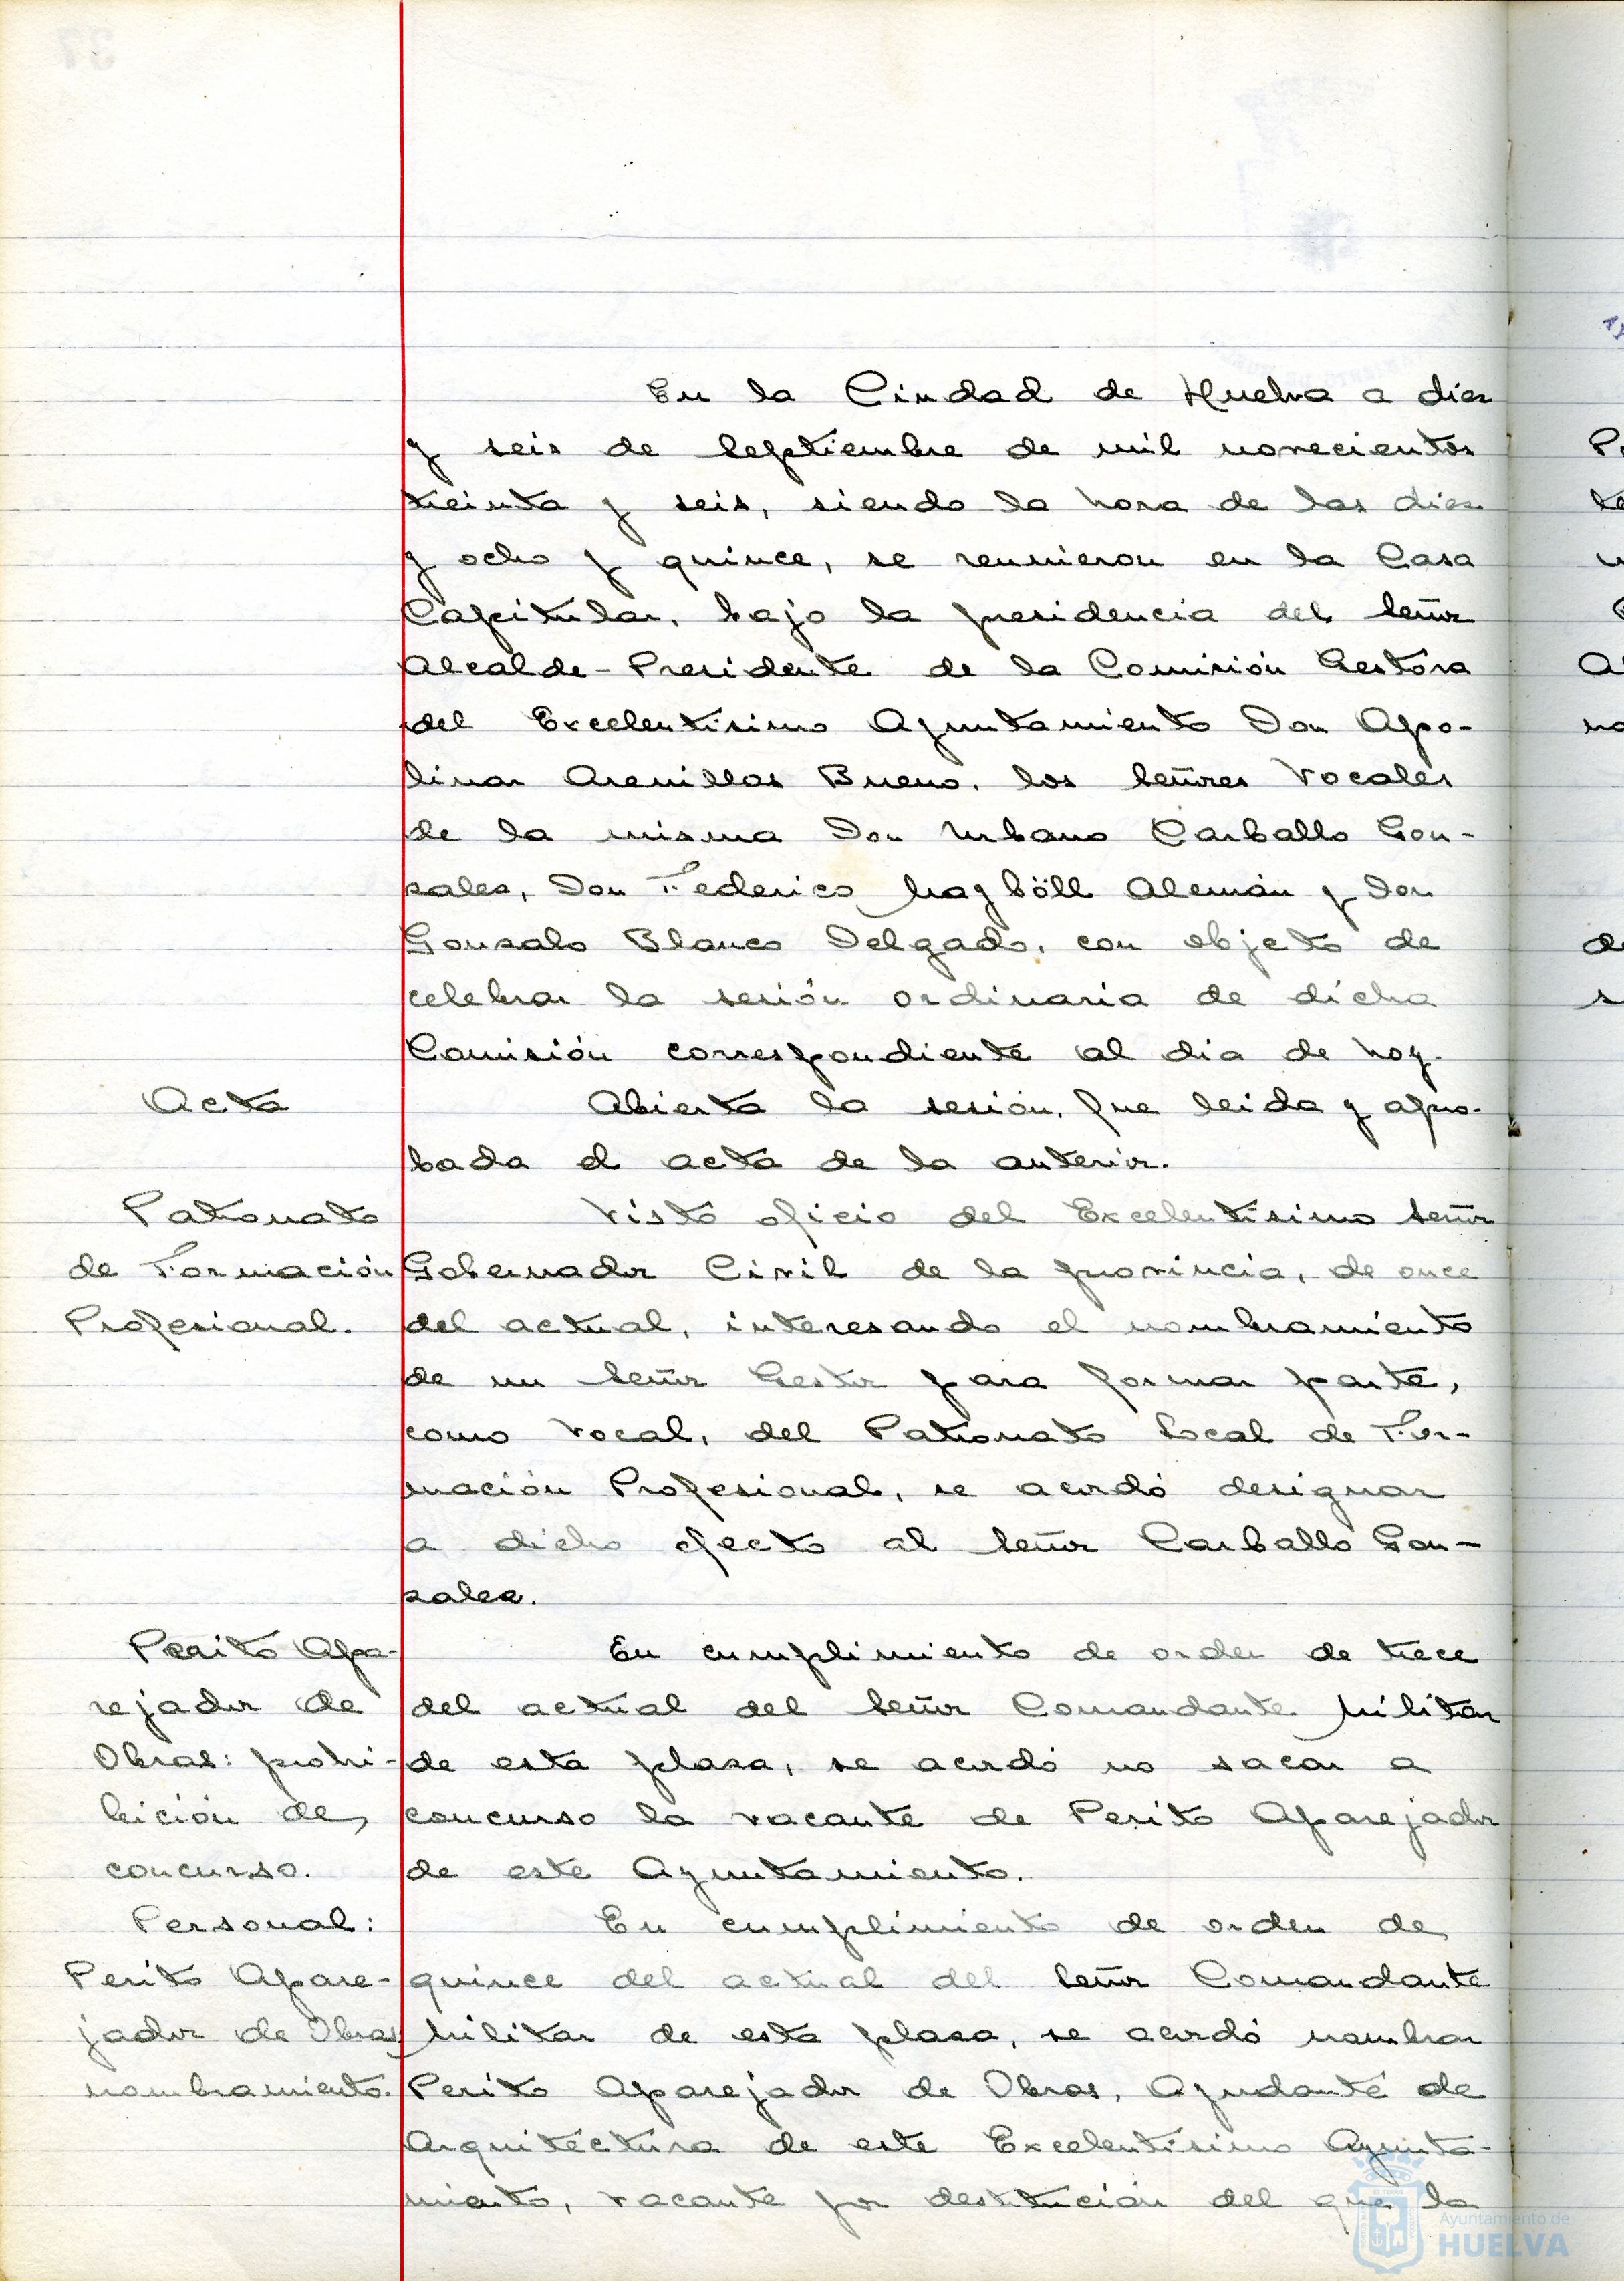 En la Ciudad de Huelva a diez
y seis de Septiembre de mil novecientos
treinta y seis, siendo la hora de las diez
y ocho y quince, se reunieron en la Casa
Capitular, bajo la presidencia del Señor
Alcalde-Presidente de la Comisión Gestora
del Excelentísimo Ayuntamiento Don Apo-
linar Arenillas Bueno, los Señores Vocales
de la misma Don Urbano Carballo Gon-
zalez, Don Federico Mayböll Alemán y Don
Gonzalo Blanco Delgado, con objeto de
celebrar la sesión ordinaria de dicha
Comisión correspondiente al dia de hoy.
Acta
Abierta la sesión, fue leida y apro-
bada el acta de la anterior.
Patronato
de Formación
Profesional.
Visto oficio del Excelentísimo Señor
Gobernador Civil de la provincia, de once
del actual, interesando el nombramiento
de un Señor Gestor para formar parte,
como Vocal, del Patronato Local de For-
mación Profesional, se acordó designar
a dicho efecto al Señor Carballo Gon-
zalez.
Perito Apa-
rejador de
Obras: prohi-
bición de
concurso.
En cumplimiento de orden de trece
del actual del Señor Comandante Militar
de esta plaza, se acordó no sacar a
concurso la vacante de Perito Aparejador
de este Ayuntamiento.
Personal:
Perito Apare-
jador de Obras
nombramiento.
En cumplimiento de orden de
quince del actual del Señor Comandante
Militar de esta plaza, se acordó nombrar
Perito Aparejador de Obras, Ayudante de
Arquitectura de este Excelentísimo Ayunta-
miento, vacante por destitución del que la
Ayuntamiento de
HUELVA